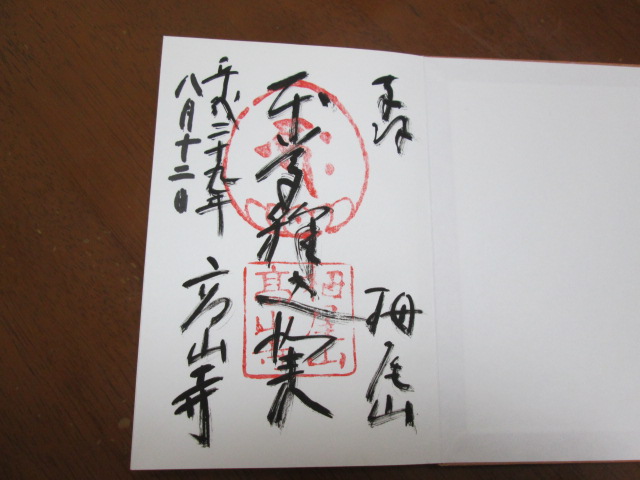 奉拝 栂尾山
本尊釋迦如来
平成二十九年
八月十二日
高山寺
栂尾山
高山寺